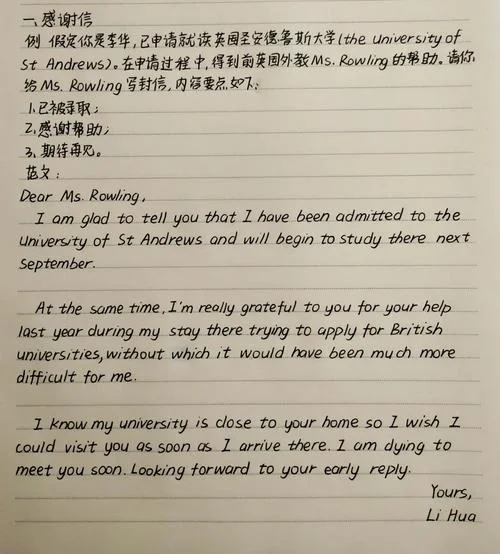 一、感谢信
例 假定你是李华,已申请就读英国圣安德鲁斯大学(the university of
St Andrews)。在申请过程中,得到前英国外教Ms. Rowling的帮助。请你
给Ms. Rowling写封信,内容要点如下:
1.已被录取;
2.感谢帮助;
3.期待再见。
范文:
Dear Ms. Rowling,
I am glad to tell you that I have been admitted to the
University of St Andrews and will begin to study there next
September.
At the same time, I'm really grateful to you for your help
last year during my stay there trying to apply for British
universities, without which it would have been much more
difficult for me.
I know my university is close to your home so I wish I
could visit you as soon as I arrive there. I am dying to
meet you soon. Looking forward to your early reply.
Yours,
Li Hua